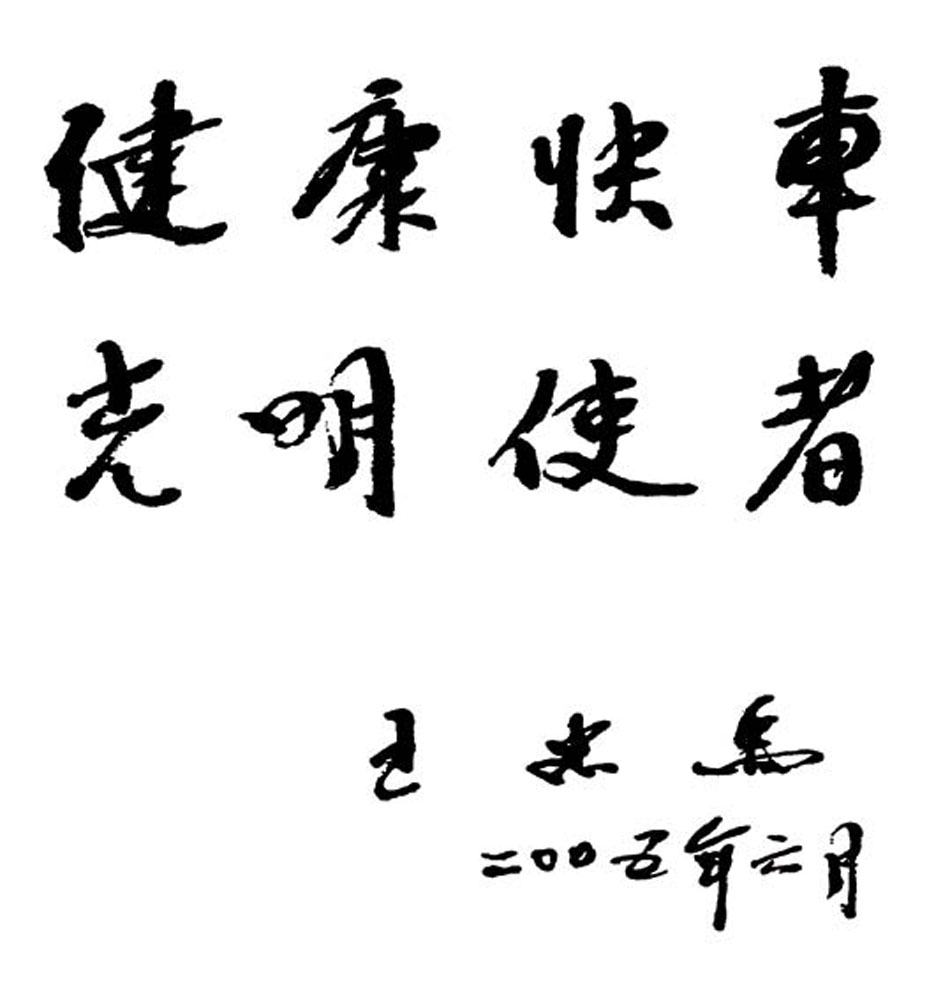 健康快車
光明使者
王忠禹
二〇〇五年六月